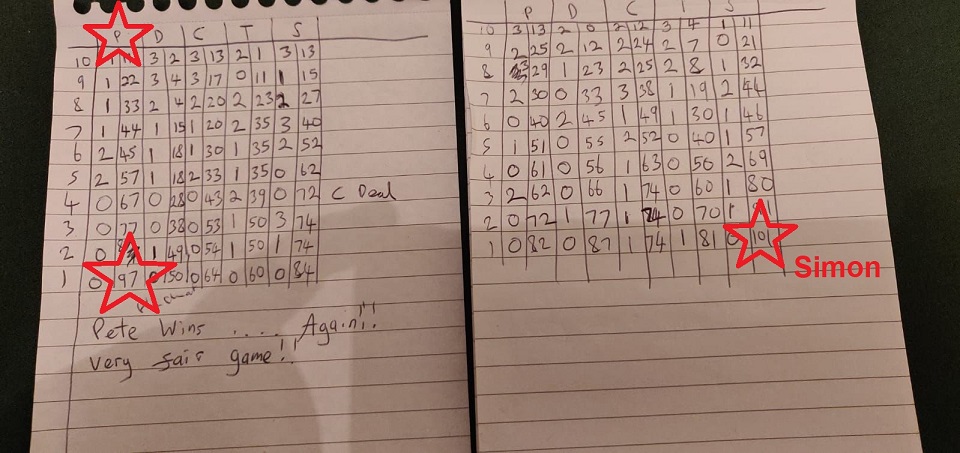 P D C T S
10 1 3 2 3 13 2 1 3 13
9 1 22 3 4 3 17 0 11 1 15
8 1 33 2 4 2 20 2 23 2 27
7 1 44 1 15 1 20 2 35 3 40
6 2 45 1 18 1 30 1 35 2 52
5 2 57 1 18 2 33 1 35 0 62
4 0 67 0 28 0 43 2 39 0 72 C Deal
3 0 77 0 38 0 53 1 50 3 74
2 0 1 49 0 54 1 50 1 74
1 0 97 0 50 0 64 0 60 0 84
Pete Wins .... Again!!
Very fair game!!
P D C T S
10 3 13 2 0 2 12 3 4 1 11
9 2 25 2 12 2 24 2 7 0 21
8 3 29 1 23 2 25 2 8 1 32
7 2 30 0 33 3 38 1 19 2 44
6 0 40 2 45 1 49 1 30 1 46
5 1 51 0 55 2 52 0 40 1 57
4 0 61 0 56 1 63 0 50 2 69
3 2 62 0 66 1 74 0 60 1 80
2 0 72 1 77 1 84 0 70 1 91
1 0 82 0 87 1 74 1 81 0 101
Simon